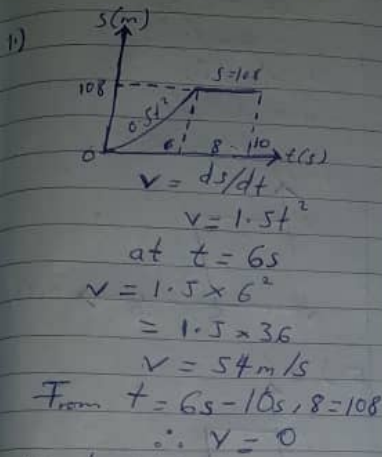 1.)
S(m)
108
0.5t²
S=108
0
6
8
10
t(s)
v = ds/dt
v = 1.5t²
at t = 6s
v = 1.5 × 6²
= 1.5 × 36
v = 54m/s
From t = 6s - 10s, 8 = 108
∴ v = 0